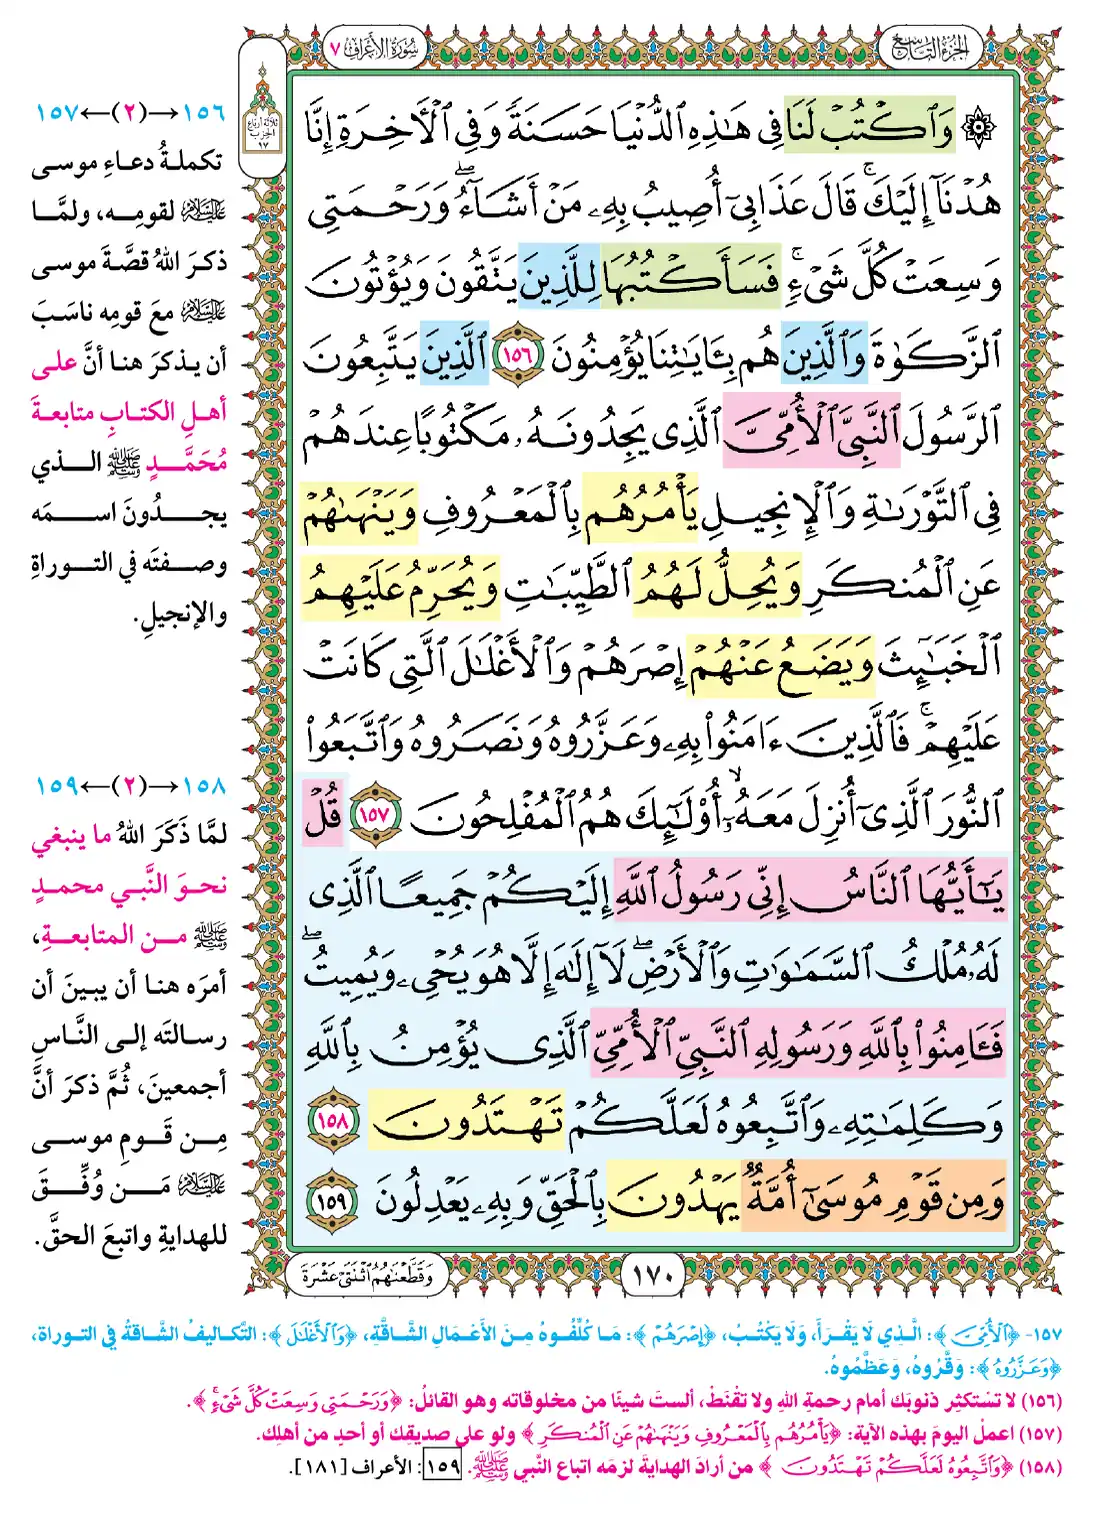 الجزء التاسع
سورة الأعراف ٧
ثلاثة أرباع الحزب ١٧
۞ وَٱكْتُبْ لَنَا فِى هَٰذِهِ ٱلدُّنْيَا حَسَنَةً وَفِى ٱلْـَٔاخِرَةِ إِنَّا
هُدْنَآ إِلَيْكَ ۚ قَالَ عَذَابِىٓ أُصِيبُ بِهِۦ مَنْ أَشَآءُ ۖ وَرَحْمَتِى
وَسِعَتْ كُلَّ شَىْءٍ ۚ فَسَأَكْتُبُهَا لِلَّذِينَ يَتَّقُونَ وَيُؤْتُونَ
ٱلزَّكَوٰةَ وَٱلَّذِينَ هُم بِـَٔايَٰتِنَا يُؤْمِنُونَ ١٥٦ ٱلَّذِينَ يَتَّبِعُونَ
ٱلرَّسُولَ ٱلنَّبِىَّ ٱلْأُمِّىَّ ٱلَّذِى يَجِدُونَهُۥ مَكْتُوبًا عِندَهُمْ
فِى ٱلتَّوْرَىٰةِ وَٱلْإِنجِيلِ يَأْمُرُهُم بِٱلْمَعْرُوفِ وَيَنْهَىٰهُمْ
عَنِ ٱلْمُنكَرِ وَيُحِلُّ لَهُمُ ٱلطَّيِّبَٰتِ وَيُحَرِّمُ عَلَيْهِمُ
ٱلْخَبَٰٓئِثَ وَيَضَعُ عَنْهُمْ إِصْرَهُمْ وَٱلْأَغْلَٰلَ ٱلَّتِى كَانَتْ
عَلَيْهِمْ ۚ فَٱلَّذِينَ ءَامَنُوا۟ بِهِۦ وَعَزَّرُوهُ وَنَصَرُوهُ وَٱتَّبَعُوا۟
ٱلنُّورَ ٱلَّذِىٓ أُنزِلَ مَعَهُۥٓ ۙ أُو۟لَٰٓئِكَ هُمُ ٱلْمُفْلِحُونَ ١٥٧ قُلْ
يَٰٓأَيُّهَا ٱلنَّاسُ إِنِّى رَسُولُ ٱللَّهِ إِلَيْكُمْ جَمِيعًا ٱلَّذِى
لَهُۥ مُلْكُ ٱلسَّمَٰوَٰتِ وَٱلْأَرْضِ ۖ لَآ إِلَٰهَ إِلَّا هُوَ يُحْىِۦ وَيُمِيتُ ۖ
فَـَٔامِنُوا۟ بِٱللَّهِ وَرَسُولِهِ ٱلنَّبِىِّ ٱلْأُمِّىِّ ٱلَّذِى يُؤْمِنُ بِٱللَّهِ
وَكَلِمَٰتِهِۦ وَٱتَّبِعُوهُ لَعَلَّكُمْ تَهْتَدُونَ ١٥٨
وَمِن قَوْمِ مُوسَىٰٓ أُمَّةٌ يَهْدُونَ بِٱلْحَقِّ وَبِهِۦ يَعْدِلُونَ ١٥٩
١٧٠
وَقَطَّعْنَٰهُمُ ٱثْنَتَىْ عَشْرَةَ
١٥٦→(٢)←١٥٧
تكملةُ دعاءِ موسى
عليه السلام لقومِه، ولمَّا
ذكرَ اللهُ قصَّةَ موسى
عليه السلام معَ قومِه ناسَبَ
أن يذكرَ هنا أنَّ على
أهلِ الكتابِ متابعةَ
مُحَمَّدٍ ﷺ الذي
يجدُونَ اسمَه
وصفتَه في التوراةِ
والإنجيلِ.
١٥٨→(٢)←١٥٩
لمَّا ذَكَرَ اللهُ ما ينبغي
نحوَ النَّبي محمدٍ
ﷺ من المتابعةِ،
أمرَه هنا أن يبينَ أن
رسالتَه إلى النَّاسِ
أجمعينَ، ثُمَّ ذكرَ أنَّ
مِن قَومِ موسى
عليه السلام مَن وُفِّقَ
للهدايةِ واتبعَ الحقَّ.
١٥٧- ﴿ٱلْأُمِّىَّ﴾: الَّذِي لَا يَقْرَأُ، وَلَا يَكْتُبُ، ﴿إِصْرَهُمْ﴾: مَا كُلِّفُوهُ مِنَ الأَعْمَالِ الشَّاقَّةِ، ﴿وَٱلْأَغْلَٰلَ﴾: التَّكاليفُ الشَّاقةُ في التوراة،
﴿وَعَزَّرُوهُ﴾: وَقَّرُوهُ، وَعَظَّمُوهُ.
(١٥٦) لا تستكثِر ذنوبَك أمام رحمةِ اللهِ ولا تقْنَطْ، ألستَ شيئًا من مخلوقاته وهو القائلُ: ﴿وَرَحْمَتِى وَسِعَتْ كُلَّ شَىْءٍ ۚ﴾.
(١٥٧) اعملْ اليومَ بهذه الآية: ﴿يَأْمُرُهُم بِٱلْمَعْرُوفِ وَيَنْهَىٰهُمْ عَنِ ٱلْمُنكَرِ﴾ ولو على صديقِك أو أحدٍ من أهلِك.
(١٥٨) ﴿وَٱتَّبِعُوهُ لَعَلَّكُمْ تَهْتَدُونَ﴾ من أرادَ الهدايةَ لزمَه اتباع النَّبي ﷺ. ١٥٩: الأعراف [١٨١].